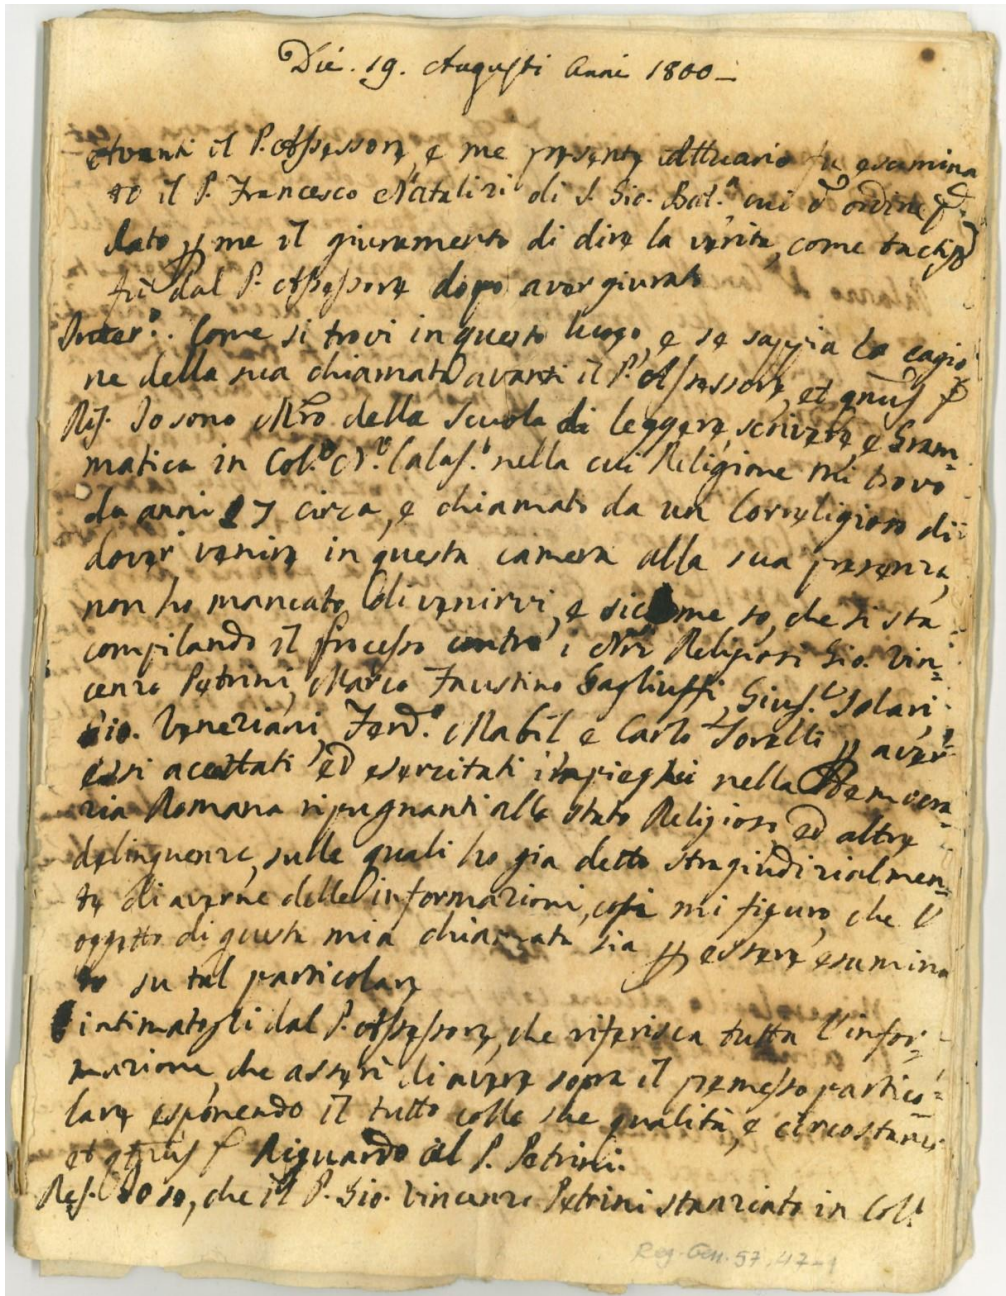 Die. 19. Augusti Anni 1800 _
Avanti il P. Assessore, e me presente Attuario fu esamina
to il P. Francesco Natalizi di S. Gio. Bat.a cui d'ordine
dato me il giuramento di dire la verita, come
fù dal P. Assessore dopo aver giurato
Inter.o. Come si trovi in questo luogo, e se sappia la cagio
ne della sua chiamata avanti il P. Assessore, et
Res. Io sono Mro della Scuola di leggere, scrivere, e Gram=
matica in Col.o N.o Calas.o nella cui Religione mi trovo
da anni 27 circa, e chiamato da un Correligioso di
dover venire in questa camera alla sua presenza,
non ho mancato di venirvi, e siccome so, che si sta
compilando il Processo contro i Nri Religiosi Gio. Vin=
cenzo Petrini, Marco Faustino Gagliuffi, Gius.e Solari
Gio. Veneziani, Ferd.o Mabil, e Carlo Torelli aver
essi accettati ed esercitati impieghi nella Democra=
zia Romana ripugnanti allo stato Religioso ed altre
delinquenze, sulle quali ho gia detto stragiudizialmen=
te di averne delle informazioni, così mi figuro, che l'
oggetto di questa mia chiamata sia essere esamina
to su tal particolare
intimatogli dal P. Assessore, che riferisca tutta l'infor=
mazione, che asserì di avere sopra il premesso partico=
lare esponendo il tutto colle sue qualità, e circostanze
et Riguardo al P. Petrini.
Res. Io so, che il P. Gio. Vincenzo Petrini stanziato in Coll.
Reg. Gen. 57, 47-1